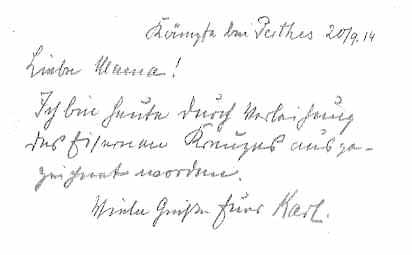 Kämpfe bei Perthes 20/9.14
Liebe Mama!
Ich bin heute durch Verleihung
des Eisernen Kreuzes ausge-
zeichnet worden.
Viele Grüße Euer Karl.